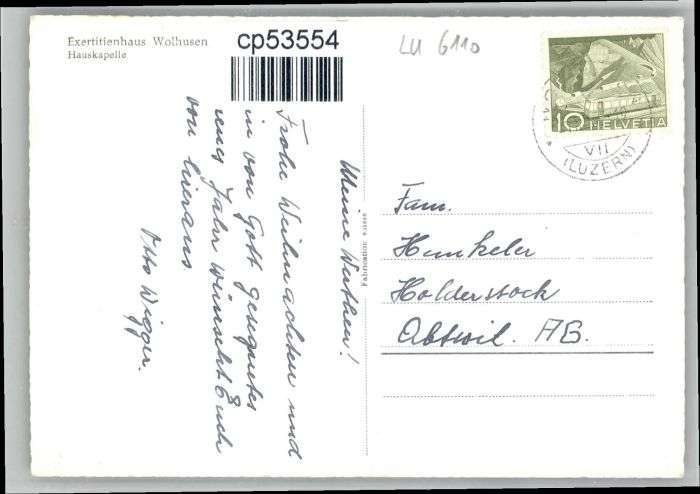 Exertitienhaus Wolhusen
Hauskapelle
cp53554
LU 6110
10 HELVETIA
VII
(LUZERN)
Meine Werthen!
Frohe Weihnachten und
in von Gott gesegnetes
neues Jahr wünscht Euch
von hieraus
Otto Wigger.
Fabrication suisse
Fam.
Hunkeler
Holderstock
Abtwil. AG.